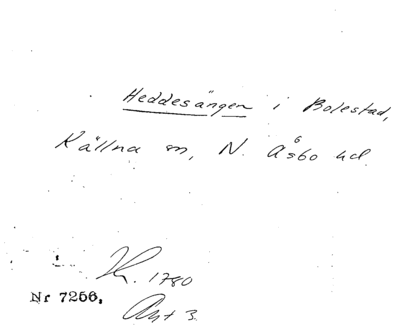 Heddesängen i Bolestad,
Källna sn, N. Åsbo hd
H. 1780
Nr 7256.
Akt 3